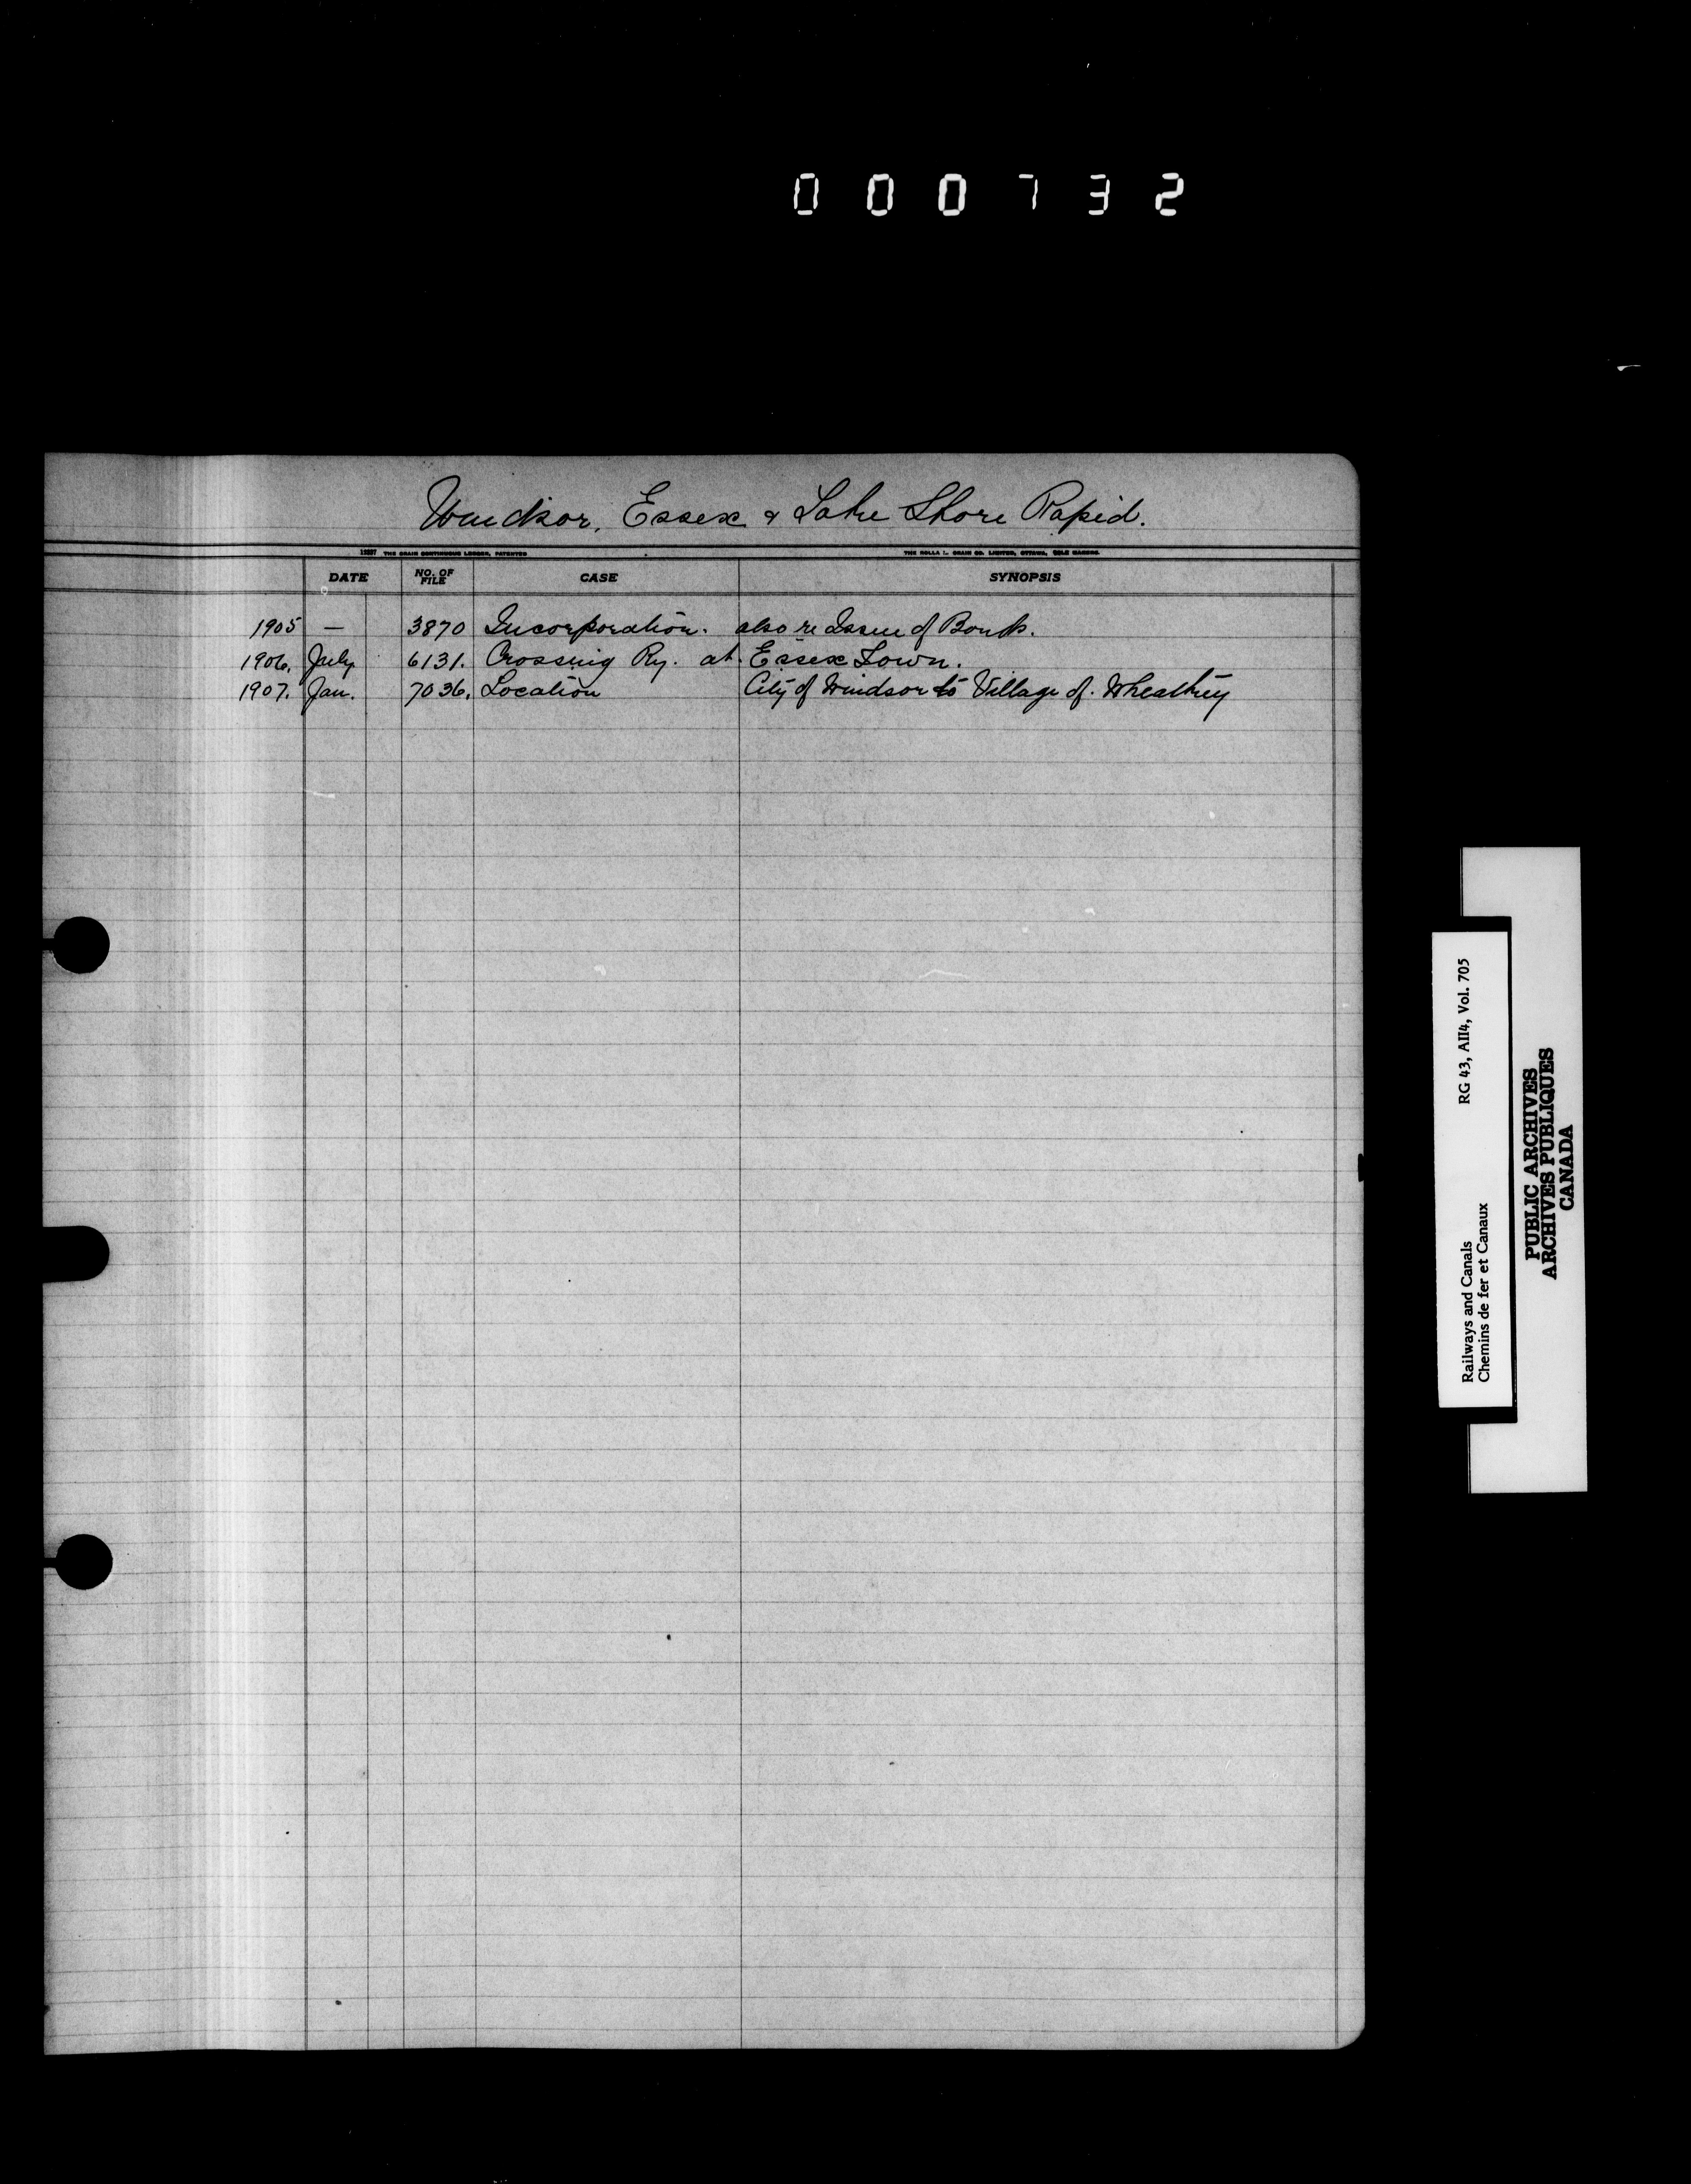 000732
Windsor, Essex & Lake Shore Rapid.
12257 THE CRAIN CONTINUOUS LEDGER, PATENTED THE ROLLA L. CRAIN CO. LIMITED, OTTAWA, SOLE MAKERS.
DATE NO. OF FILE CASE SYNOPSIS
1905 — 3870 Incorporation. also re Issue of Bonds.
1906. July 6131. Crossing Ry. at Essex Town.
1907. Jan. 7036. Location City of Windsor to Village of Wheatley
Railways and Canals RG 43, AII4, Vol. 705
Chemins de fer et Canaux
PUBLIC ARCHIVES
ARCHIVES PUBLIQUES
CANADA